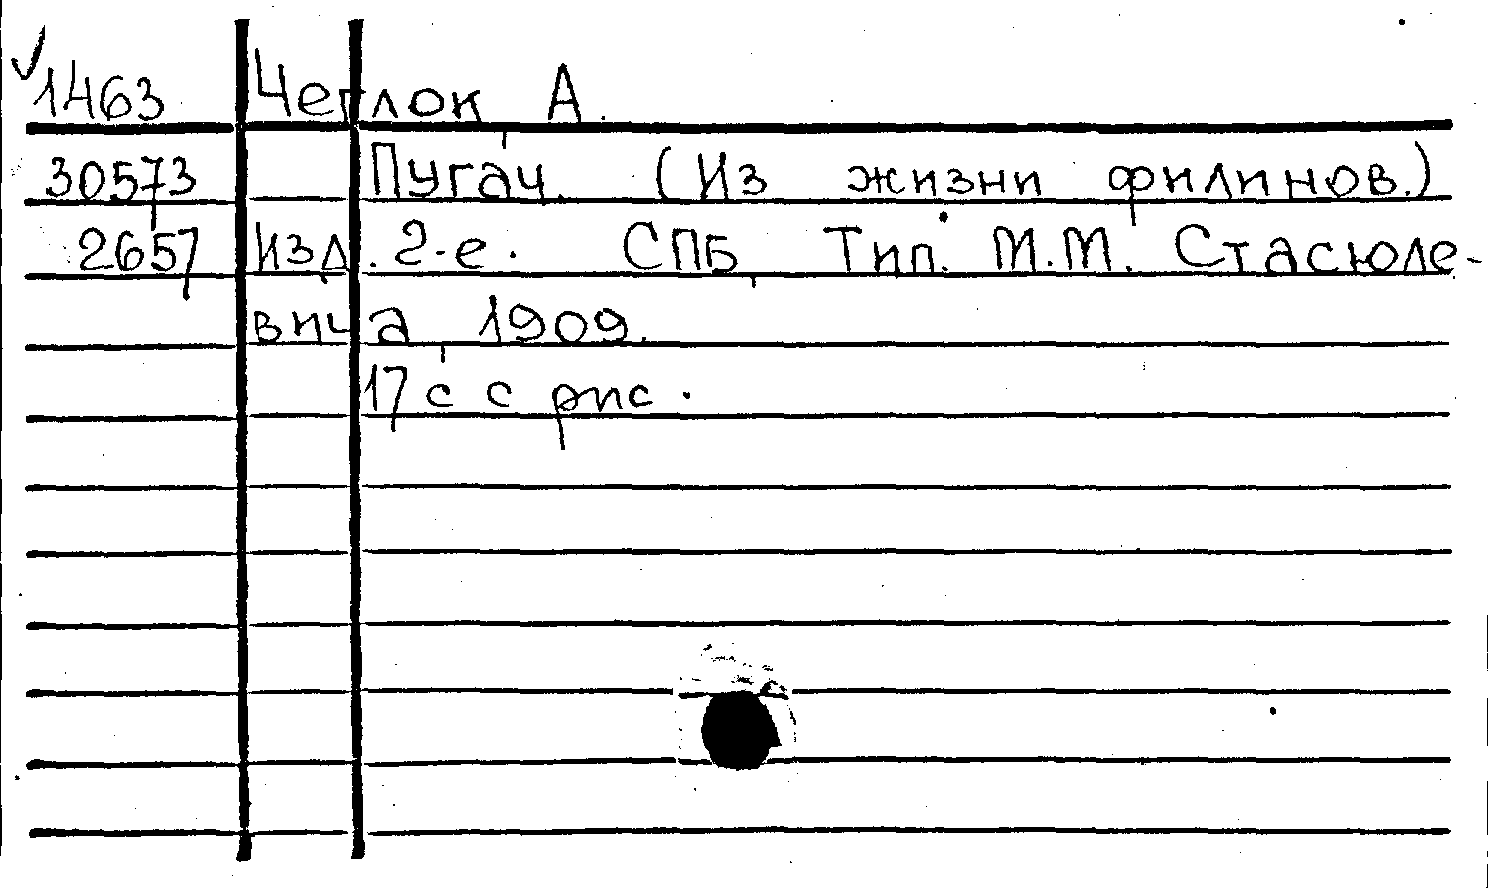 √1463 Чеглок, А.
30573 Пугач. (Из жизни филинов.)
2657 Изд. 2-е. СПБ, Тип. М.М. Стасюле-
вича, 1909.
17 с с рис.